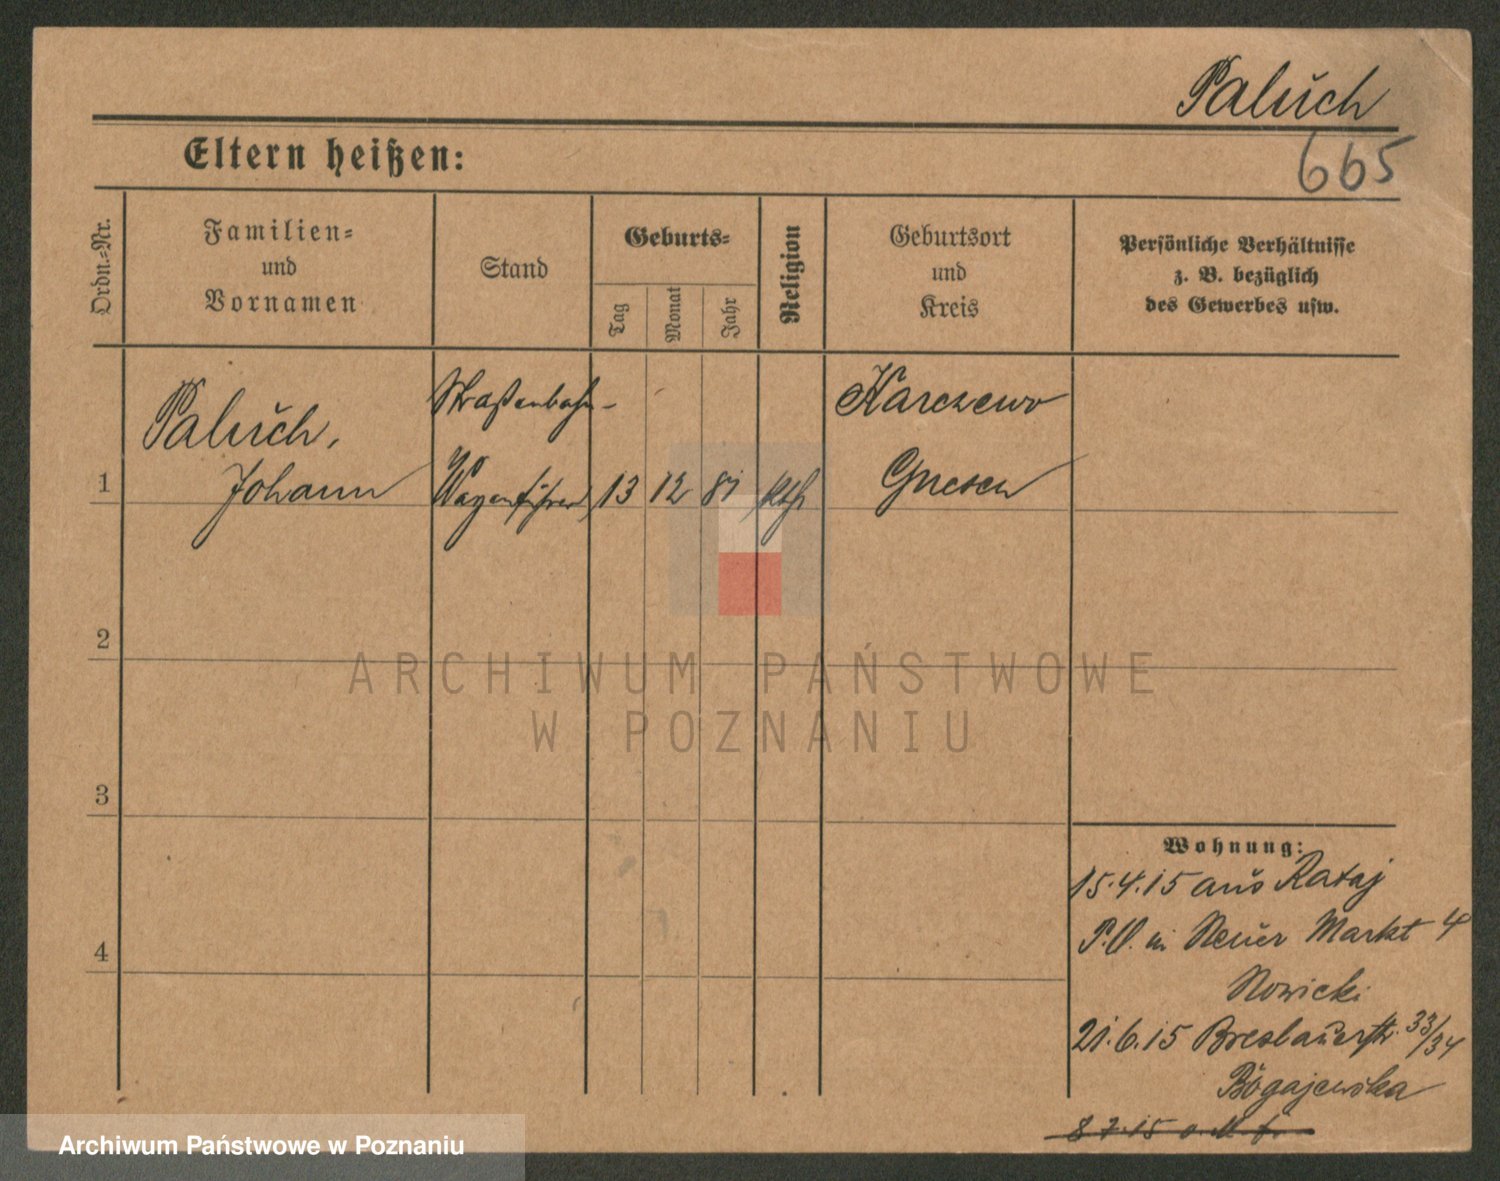 Paluch
665
Eltern heißen:
Ordn.-Nr.
Familien-
und
Vornamen
Stand
Geburts-
Tag
Monat
Jahr
Religion
Geburtsort
und
Kreis
Persönliche Verhältnisse
z. B. bezüglich
des Gewerbes usw.
1
Paluch,
Johann
Straßenbahn-
Wagenführer
13
12
81
kth
Karczewo
Gnesen
2
3
4
Wohnung:
15.4.15 aus Rataj
P.O. in Neuer Markt 4
Nowicki
21.6.15 Breslauerstr. 33/34
Bogajewska
8.7.15 o. M. f.
ARCHIWUM PAŃSTWOWE
W POZNANIU
Archiwum Państwowe w Poznaniu